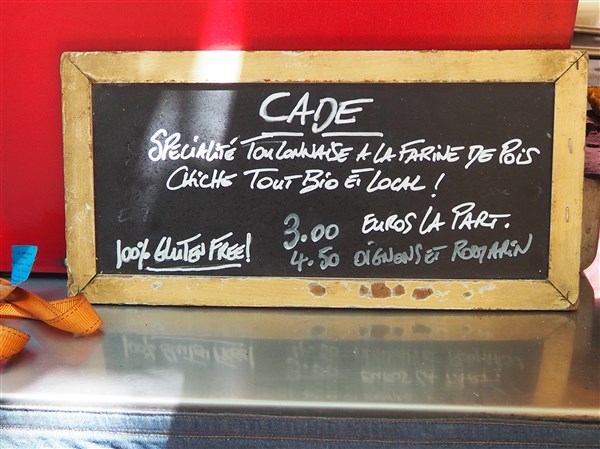 CADE
SPECIALITÉ TOULONNAISE A LA FARINE DE POIS
CHICHE TOUT BIO ET LOCAL !
3.00 EUROS LA PART.
100% GLUTEN FREE! 4.50 OIGNONS ET ROMARIN